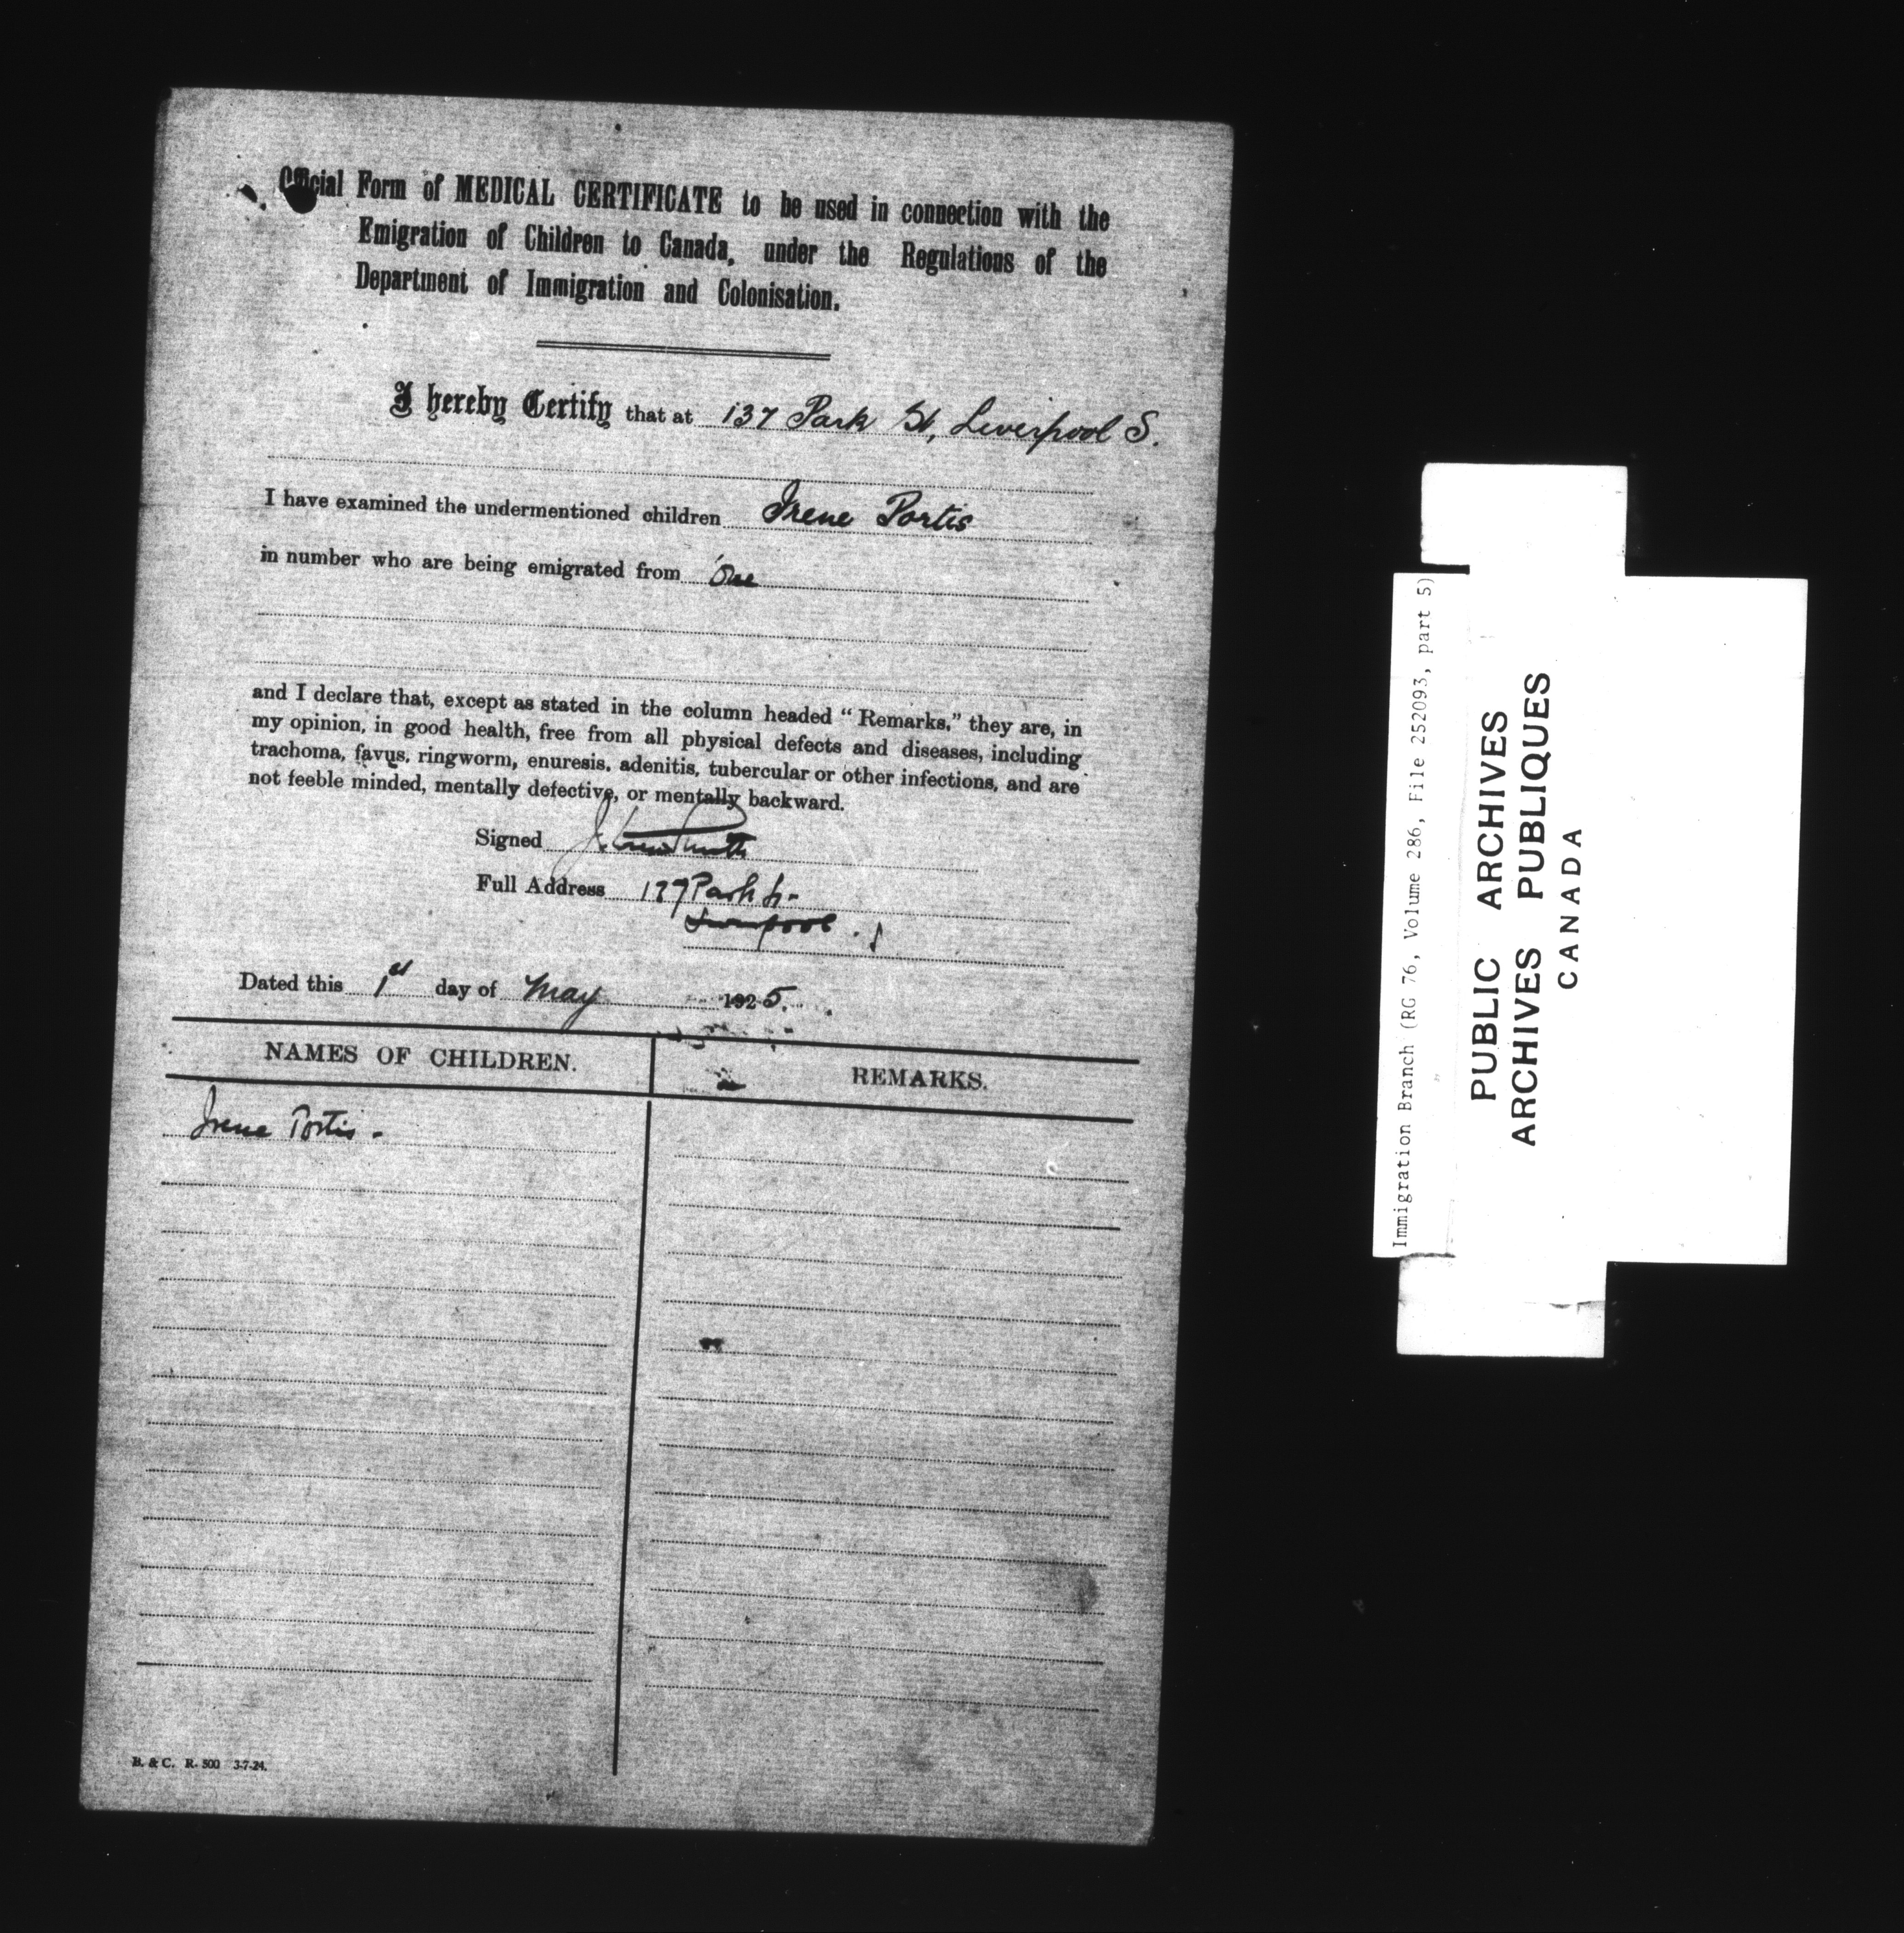 Official Form of MEDICAL CERTIFICATE to be used in connection with the
Emigration of Children to Canada, under the Regulations of the
Department of Immigration and Colonisation.
I hereby Certify that at 137 Park St, Liverpool S.
I have examined the undermentioned children Irene Portis
in number who are being emigrated from One
and I declare that, except as stated in the column headed "Remarks," they are, in
my opinion, in good health, free from all physical defects and diseases, including
trachoma, favus, ringworm, enuresis, adenitis, tubercular or other infections, and are
not feeble minded, mentally defective, or mentally backward.
Signed
Full Address 137 Park St
Liverpool. S
Dated this 1st day of May 1925.
NAMES OF CHILDREN. REMARKS.
Irene Portis.
B. & C. R. 500 3-7-24.
Immigration Branch (RG 76, Volume 286, File 252093, part 5)
PUBLIC ARCHIVES
ARCHIVES PUBLIQUES
CANADA